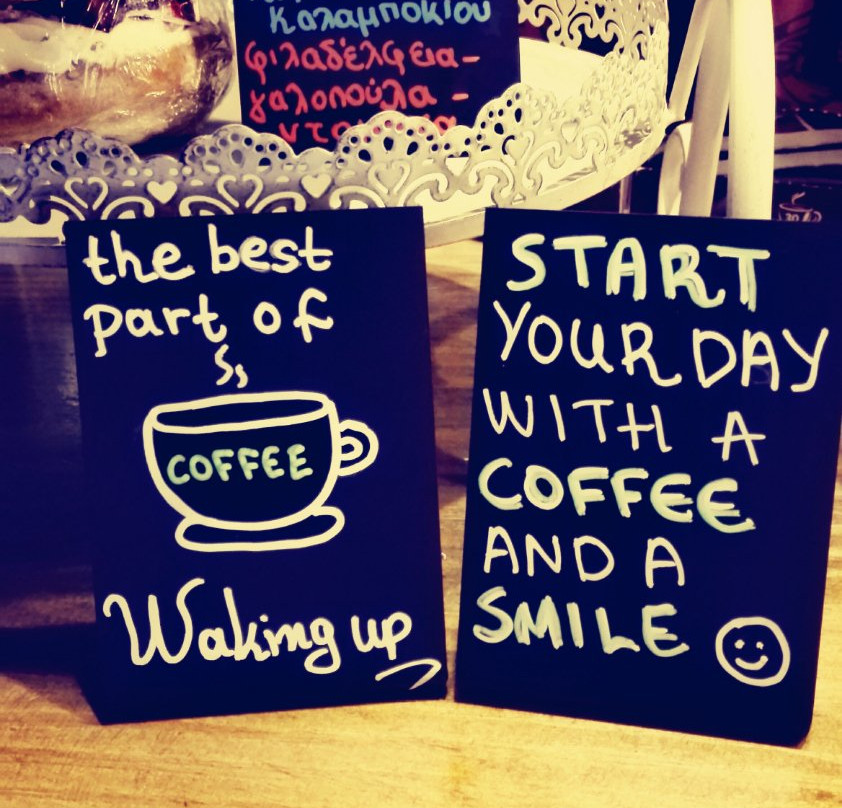 Καλαμποκιού
φιλαδέλφεια-
γαλοπούλα -
the best
part of
COFFEE
Waking up
START
YOUR DAY
WITH A
COFFEE
AND A
SMILE